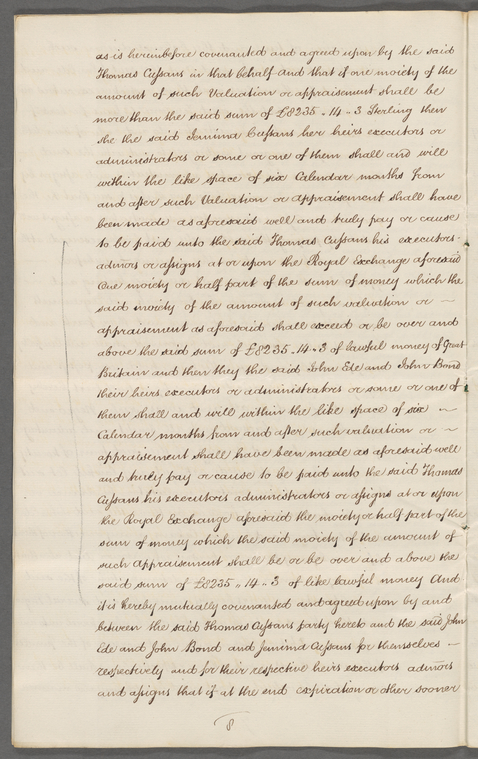 as is hereinbefore covenanted and agreed upon by the said
Thomas Cussans in that behalf And that if one moiety of the
amount of such Valuation or appraisement shall be
more than the said sum of £8235 „ 14 „ 3 Sterling then
she the said Jemima Cussans her heirs executors or
administrators or some or one of them shall and will
within the like space of six Calendar months from
and after such Valuation or appraisement shall have
been made as aforesaid well and truly pay or cause
to be paid unto the said Thomas Cussans his executors
admors or assigns at or upon the Royal Exchange aforesaid
One moiety or half part of the sum of money which the
said moiety of the amount of such valuation or ~
appraisement as aforesaid shall exceed or be over and
above the said sum of £8235 „ 14 „ 3 of lawful money of Great
Britain and then they the said John Ede and John Bond
their heirs executors or administrators or some or one of
them shall and will within the like space of six ~
Calendar months from and after such valuation or ~
appraisement shall have been made as aforesaid well
and truly pay or cause to be paid unto the said Thomas
Cussans his executors administrators or assigns at or upon
the Royal Exchange aforesaid the moiety or half part of the
sum of money which the said moiety of the amount of
such appraisement shall be or be over and above the
said sum of £8235 „ 14 „ 3 of like lawful money And
it is hereby mutually covenanted and agreed upon by and
between the said Thomas Cussans party hereto and the said John
Ede and John Bond and Jemima Cussans for themselves —
respectively and for their respective heirs executors admors
and assigns that if at the end expiration or other sooner
8